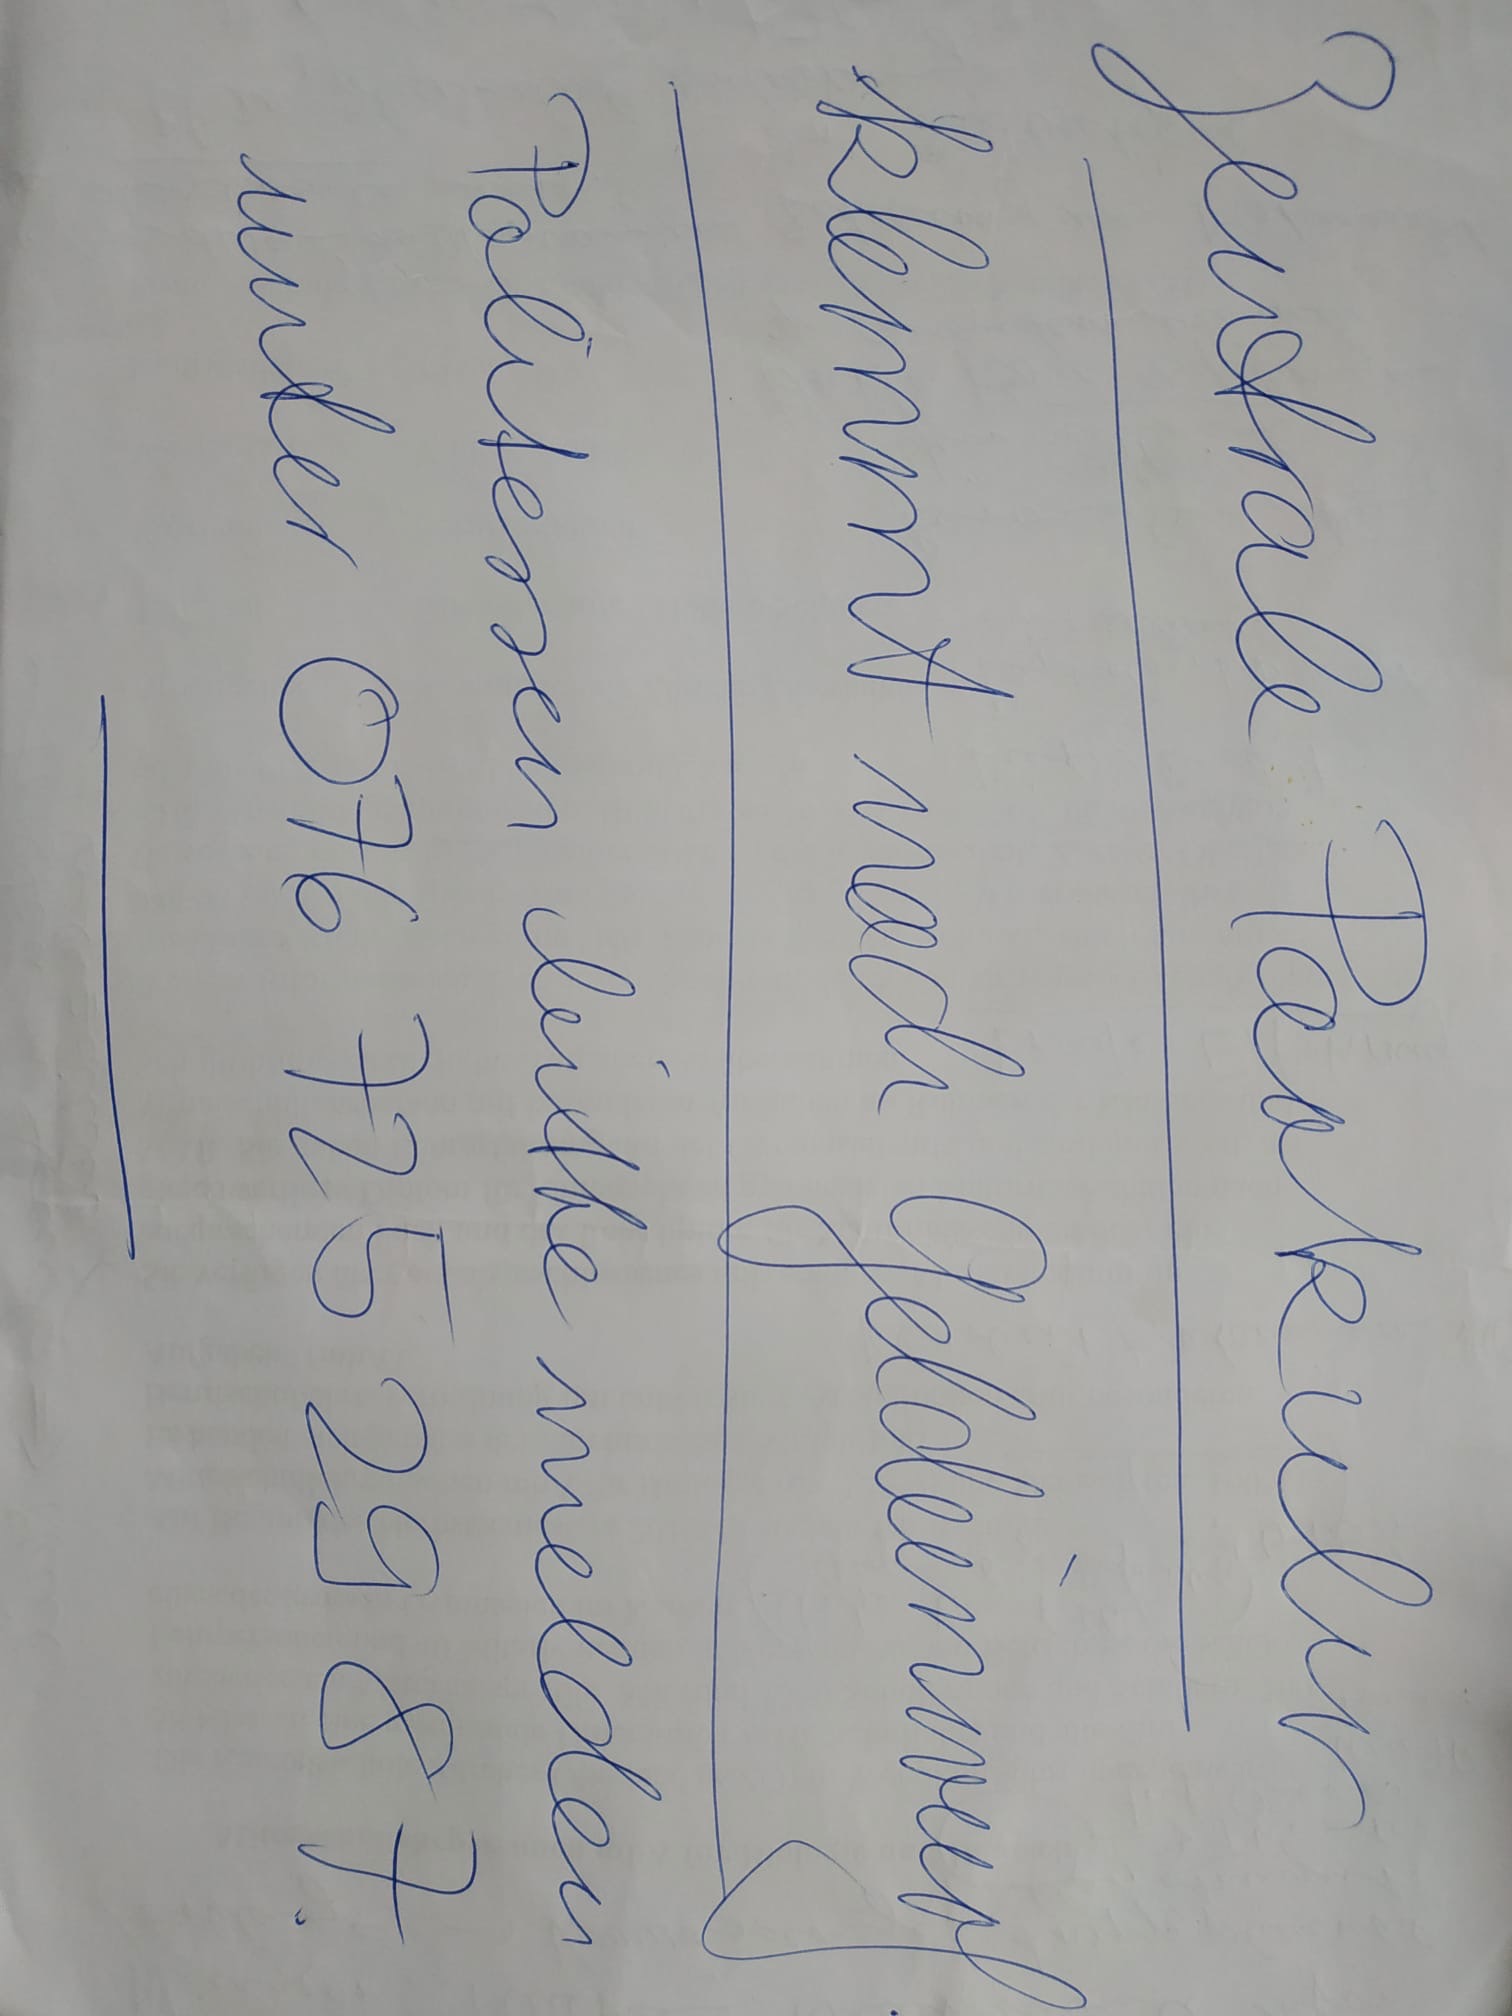 Zentrale Parkuhr
klemmt nach Geldeinwurf
Politessen bitte melden
unter 076 725 29 87.